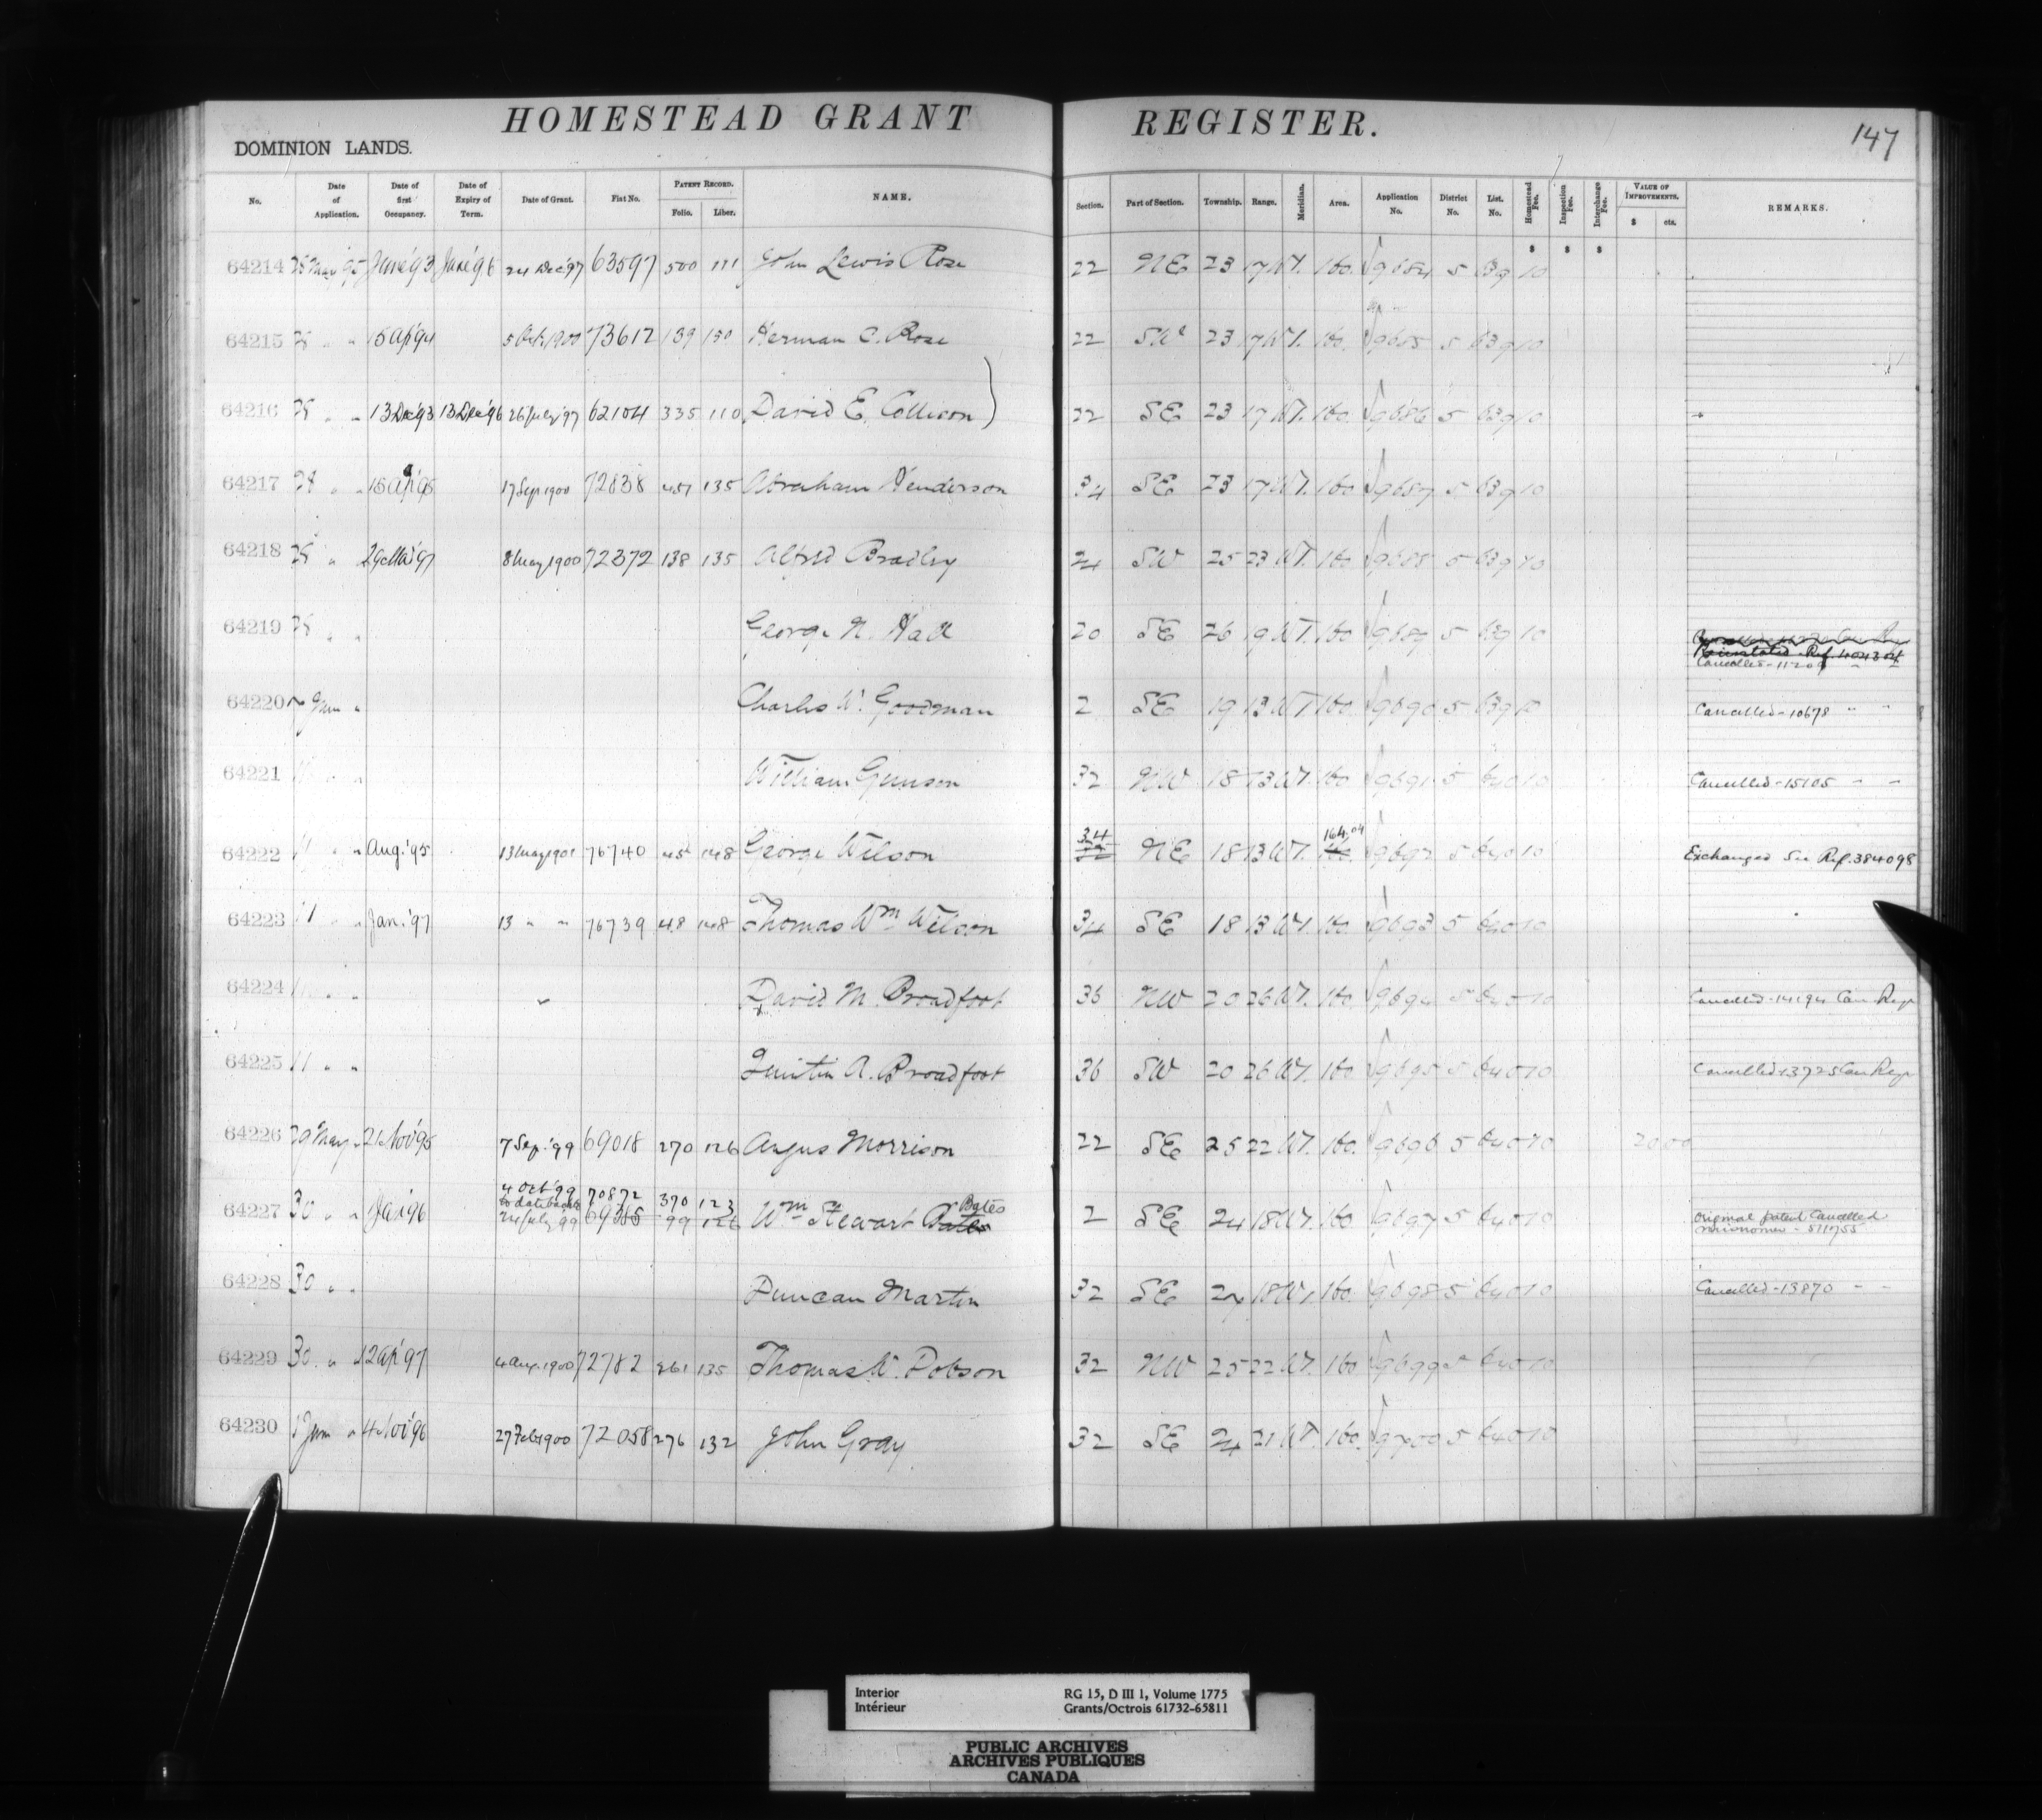 HOMESTEAD GRANT REGISTER.
147
DOMINION LANDS.
No. Date of Application. Date of first Occupancy. Date of Expiry of Term. Date of Grant. Fiat No. PATENT RECORD. Folio. Liber. NAME. Section. Part of Section. Township. Range. Meridian. Area. Application No. District No. List. No. Homestead Fee. Inspection Fee. Interchange Fee. VALUE OF IMPROVEMENTS. $ cts. REMARKS.
$ $ $
64214 June '93 June '96 24 Dec '97 63597 500 111 John Lewis Rose 22 NE 23 17 W1. 160. 9684 5 639 10
64215 " " 15 Ap '94 73612 139 150 Herman C. Rose 22 SW 23 17 W1. 160. 9685 5 639 10
64216 " " 13 Dec '93 13 Dec '96 26 July '97 62104 335 110 David E. Collison 22 SE 23 17 W1. 160. 9686 5 639 10
64217 " " 17 Sep 1900 72838 451 135 Abraham Henderson 34 SE 23 17 W1. 160 9687 5 639 10
64218 " 8 May 1900 72372 138 135 Alfred Bradley 24 SW 25 23 W1. 160 9688 5 639 10
64219 " " George N. Hall 20 SE 26 19 W1. 160 9689 5 639 10
Reinstated Ref. 404304
Cancelled - 11209 " "
64220 " Charles W. Goodman 2 SE 19 13 W1 160. 9690 5 639 10 Cancelled - 10678 " "
64221 " " William Gunson 32 NW 18 13 W1. 160 9691 5 640 10 Cancelled - 15105 " "
64222 11 " " Aug. '95 13 May 1901 76740 45 148 George Wilson 34 NE 18 13 W1. 164.04 160. 9692 5 640 10 Exchanged See Ref. 384098
64223 11 " " Jan. '97 13 " " 76739 48 148 Thomas Wm Wilson 34 SE 18 13 W1. 160. 9693 5 640 10
64224 11 " " David M. Broadfoot 36 NW 20 26 W1. 160. 9694 5 640 10 Cancelled - 14194 Can Reg
64225 11 " " Quintin A. Broadfoot 36 SW 20 26 W1. 160 9695 5 640 10 Cancelled - 13725 Can Reg
64226 29 May " 21 Nov '95 7 Sep. '99 69018 270 126 Angus Morrison 22 SE 25 22 W1. 160. 9696 5 640 10 20 00
4 Oct '99 70872 370 123 Bates
64227 30 " " Jan '96 to date back to 24 July '99 99 126 Wm Stewart 2 SE 24 18 W1. 160 9697 5 640 10 Original patent Cancelled
misnomer - 511755
64228 30 " " Duncan Martin 32 SE 24 18 W1. 160. 9698 5 640 10 Cancelled - 13870 " "
64229 30 " " 12 Ap '97 4 Aug. 1900 72782 361 135 Thomas W. Dobson 32 NW 25 22 W1. 160 9699 5 640 10
64230 1 June " 4 Nov '96 27 Feb 1900 72058 276 132 John Gray 32 SE 24 21 W1. 160. 9700 5 640 10
Interior RG 15, D III 1, Volume 1775
Intérieur Grants/Octrois 61732-65811
PUBLIC ARCHIVES
ARCHIVES PUBLIQUES
CANADA